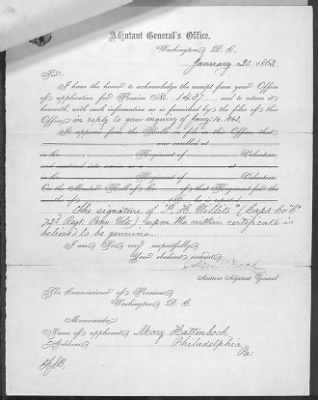 Adjutant General's Office,
Washington, D. C.
January 20, 1863.
Sir:
I have the honor to acknowledge the receipt from your Office
of application for Pension No. 1497, and to return it
herewith, with such information as is furnished by the files of this
Office, in reply to your inquiry of Jany 16, 1863.
It appears from the Rolls on file in this Office, that
was enrolled at
in Co. Regiment of Volunteers
and mustered into
in Co. Regiment of Volunteers
On the Muster Roll of Co. of that Regiment for the
The signature of "
(Capt. Co "E"
72d Regt. Penn. Vols.) upon the within certificate is
believed to be genuine.
I am, Sir, very respectfully,
Your obedient servant,
Assistant Adjutant General
The Commissioner of Pensions,
Washington, D. C.
Memoranda:
Name of applicant, Mary Hattenlock
Address, Philadelphia
Pa.